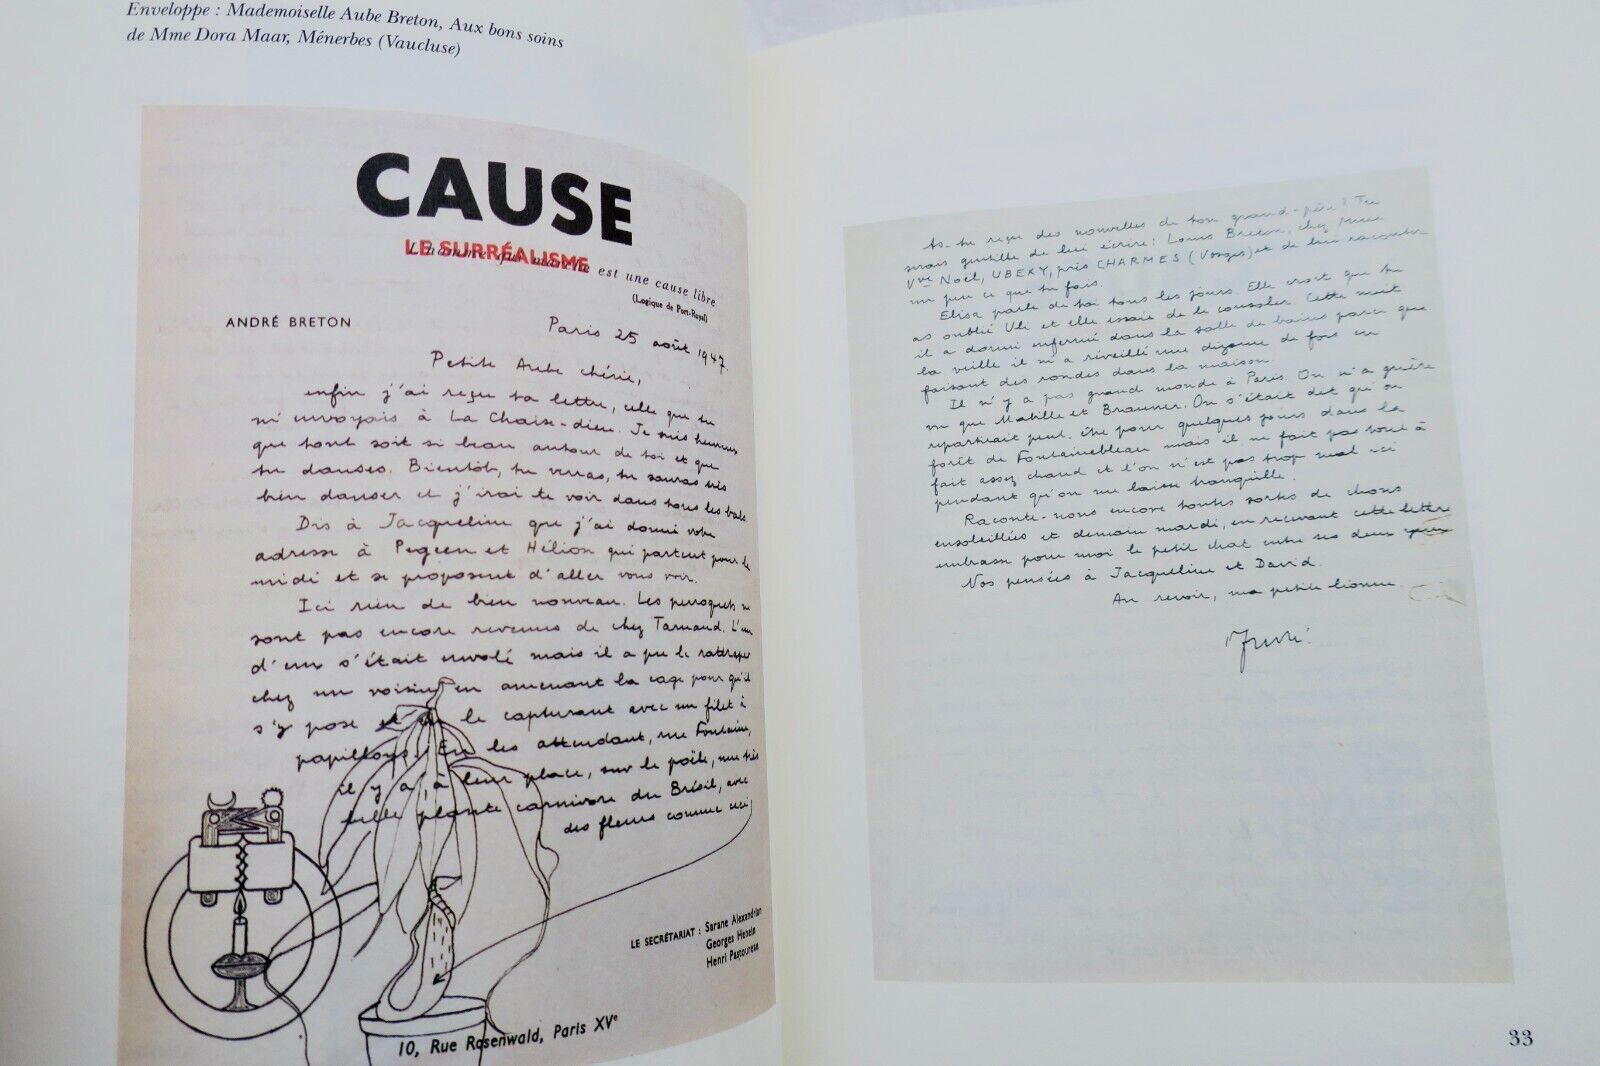 Enveloppe : Mademoiselle Aube Breton, Aux bons soins
de Mme Dora Maar, Ménerbes (Vaucluse)
CAUSE
LE SURRÉALISME
est une cause libre
(Logique de Port-Royal)
ANDRÉ BRETON
Paris 25 août 1947.
Petite Aube chérie,
enfin j'ai reçu ta lettre, celle que tu
m'envoyais à La Chaise-dieu. Je suis heureux
que tout soit si beau autour de toi et que
tu danses. Bientôt, tu verras, tu sauras très
bien danser et j'irai te voir dans tous les bals
Dis à Jacqueline que j'ai donné votre
adresse à Pegeen et Hélion qui partent pour le
midi et se proposent d'aller vous voir.
Ici rien de bien nouveau. Les perroquets ne
sont pas encore revenus de chez Tarnaud. L'un
d'eux s'était envolé mais il a pu le rattraper
chez un voisin en amenant la cage pour qu'il
s'y pose et en le capturant avec un filet à
papillons. En les attendant, rue Fontaine,
il y a, à leur place, sur le poêle, une très
belle plante carnivore du Brésil, avec
des fleurs comme ceci
LE SECRÉTARIAT : Sarane Alexandrian
Georges Henein
Henri Pastoureau
10, Rue Rosenwald, Paris XVe
As-tu reçu des nouvelles de ton grand-père? Tu
serais gentille de lui écrire : Louis Breton, chez Mme
Vve Noël, UBEXY, près CHARMES (Vosges) et de lui raconter
un peu ce que tu fais.
Elisa parle de toi tous les jours. Elle croit que tu
as oublié Uli et elle essaie de le consoler. Cette nuit
il a dormi enfermé dans la salle de bains parce que
la veille il m'a réveillé une dizaine de fois en
faisant des rondes dans la maison.
Il n'y a pas grand monde à Paris. On n'a guère
vu que Mabille et Brauner. On s'était dit qu'on
repartirait peut-être pour quelques jours dans la
forêt de Fontainebleau mais il ne fait pas tout à
fait assez chaud et l'on n'est pas trop mal ici
pendant qu'on me laisse tranquille.
Raconte-nous encore toutes sortes de choses
ensoleillées et demain mardi, en recevant cette lettre
embrasse pour moi le petit chat entre ses deux yeux
Nos pensées à Jacqueline et David.
Au revoir, ma petite lionne.
33